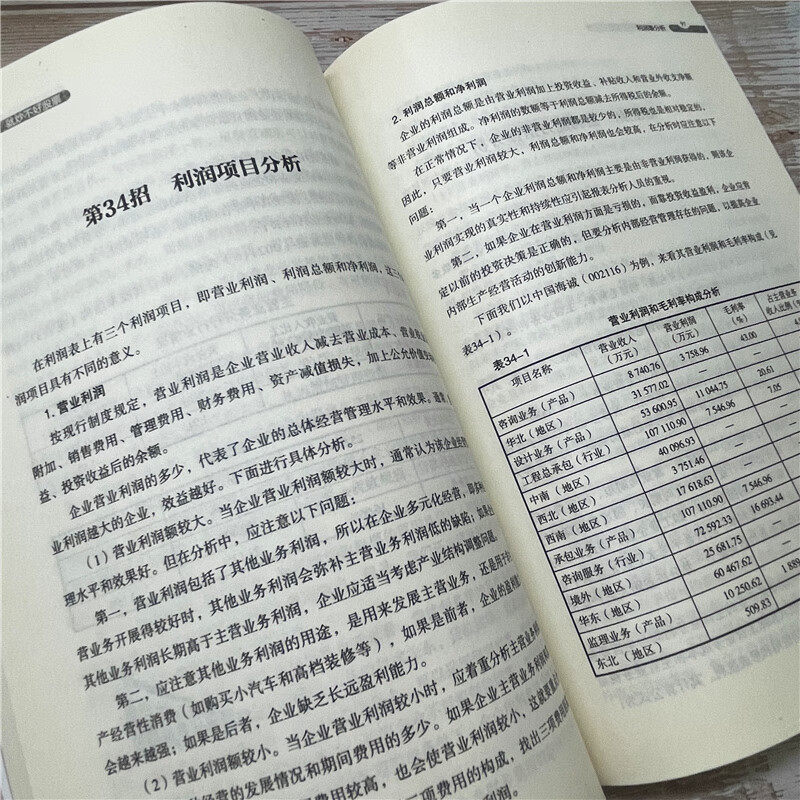 第34招 利润项目分析
在利润表上有三个利润项目，即营业利润、利润总额和净利润，这三
润项目具有不同的意义。
1. 营业利润
按现行制度规定，营业利润是企业营业收入减去营业成本、营业税
附加、销售费用、管理费用、财务费用、资产减值损失，加上公允价值变
益、投资收益后的余额。
企业营业利润的多少，代表了企业的总体经营管理水平和效果。通常
业利润越大的企业，效益越好。下面进行具体分析。
（1）营业利润额较大。当企业营业利润额较大时，通常认为该企业经
理水平和效果好。但在分析中，应注意以下问题：
第一，营业利润包括了其他业务利润，所以在企业多元化经营，即多种
营业务开展得较好时，其他业务利润会弥补主营业务利润低的缺陷；如果
其他业务利润长期高于主营业务利润，企业应适当考虑产业结构调整问题。
第二，应注意其他业务利润的用途，是用来发展主营业务，还是用于
产经营性消费（如购买小汽车和高档装修等），如果是前者，企业的盈利
会越来越强；如果是后者，企业缺乏长远盈利能力。
（2）营业利润额较小。当企业营业利润较小时，应着重分析主营业务
经营的发展情况和期间费用的多少。如果企业主营业务利润
费用较高，也会使营业利润较小，这就要
三项费用的构成，找出三项费用
利润。
利润表分析
2. 利润总额和净利润
企业的利润总额是由营业利润加上投资收益、补贴收入和营业外收支净额
等非营业利润组成。净利润的数额等于利润总额减去所得税后的余额。
在正常情况下，企业的非营业利润都是较少的，所得税也是相对稳定的，
因此，只要营业利润较大，利润总额和净利润也会较高，在分析时应注意以下
问题：
第一，当一个企业利润总额和净利润主要是由非营业利润获得的，则该企
业利润实现的真实性和持续性应引起报表分析人员的重视。
第二，如果企业在营业利润方面是亏损的，而靠投资收益盈利，企业应肯
定以前的投资决策是正确的，但要分析内部经营管理存在的问题，以提高企业
内部生产经营活动的创新能力。
下面我们以中国海诚（002116）为例，来看其营业利润和毛利率构成（见
表34-1）。
表34-1 营业利润和毛利率构成分析
项目名称 营业收入（万元） 营业利润（万元） 毛利率（%） 占主营业务收入比例（%）
咨询业务（产品） 8 740.76 3 758.96 43.00
华北（地区） 31 577.02 —
设计业务（产品） 53 600.95 11 044.75 20.61
工程总承包（行业） 107 110.90 7 546.96 7.05
中南（地区） 40 096.93 —
西北（地区） 3 751.46 —
西南（地区） 17 618.63 —
承包业务（产品） 107 110.90 7 546.96
咨询服务（行业） 72 592.33 16 693.44
境外（地区） 25 681.75 —
华东（地区） 60 467.62 —
监理业务（产品） 10 250.62
东北（地区） 509.83